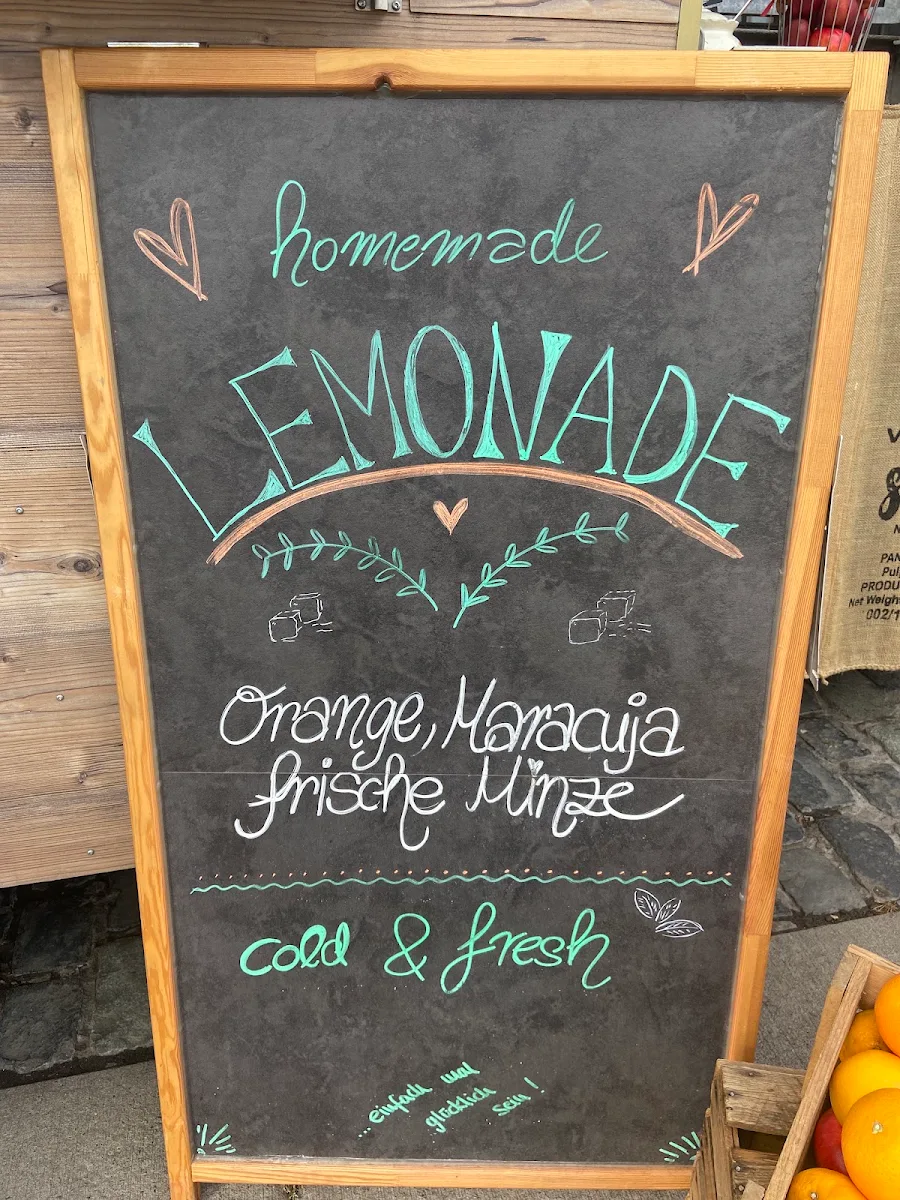 homemade
LEMONADE
Orange, Maracuja
frische Minze
cold & fresh
...einfach mal
glücklich
sein!
PAN
Pul
PRODU
Net Weigh
002/1